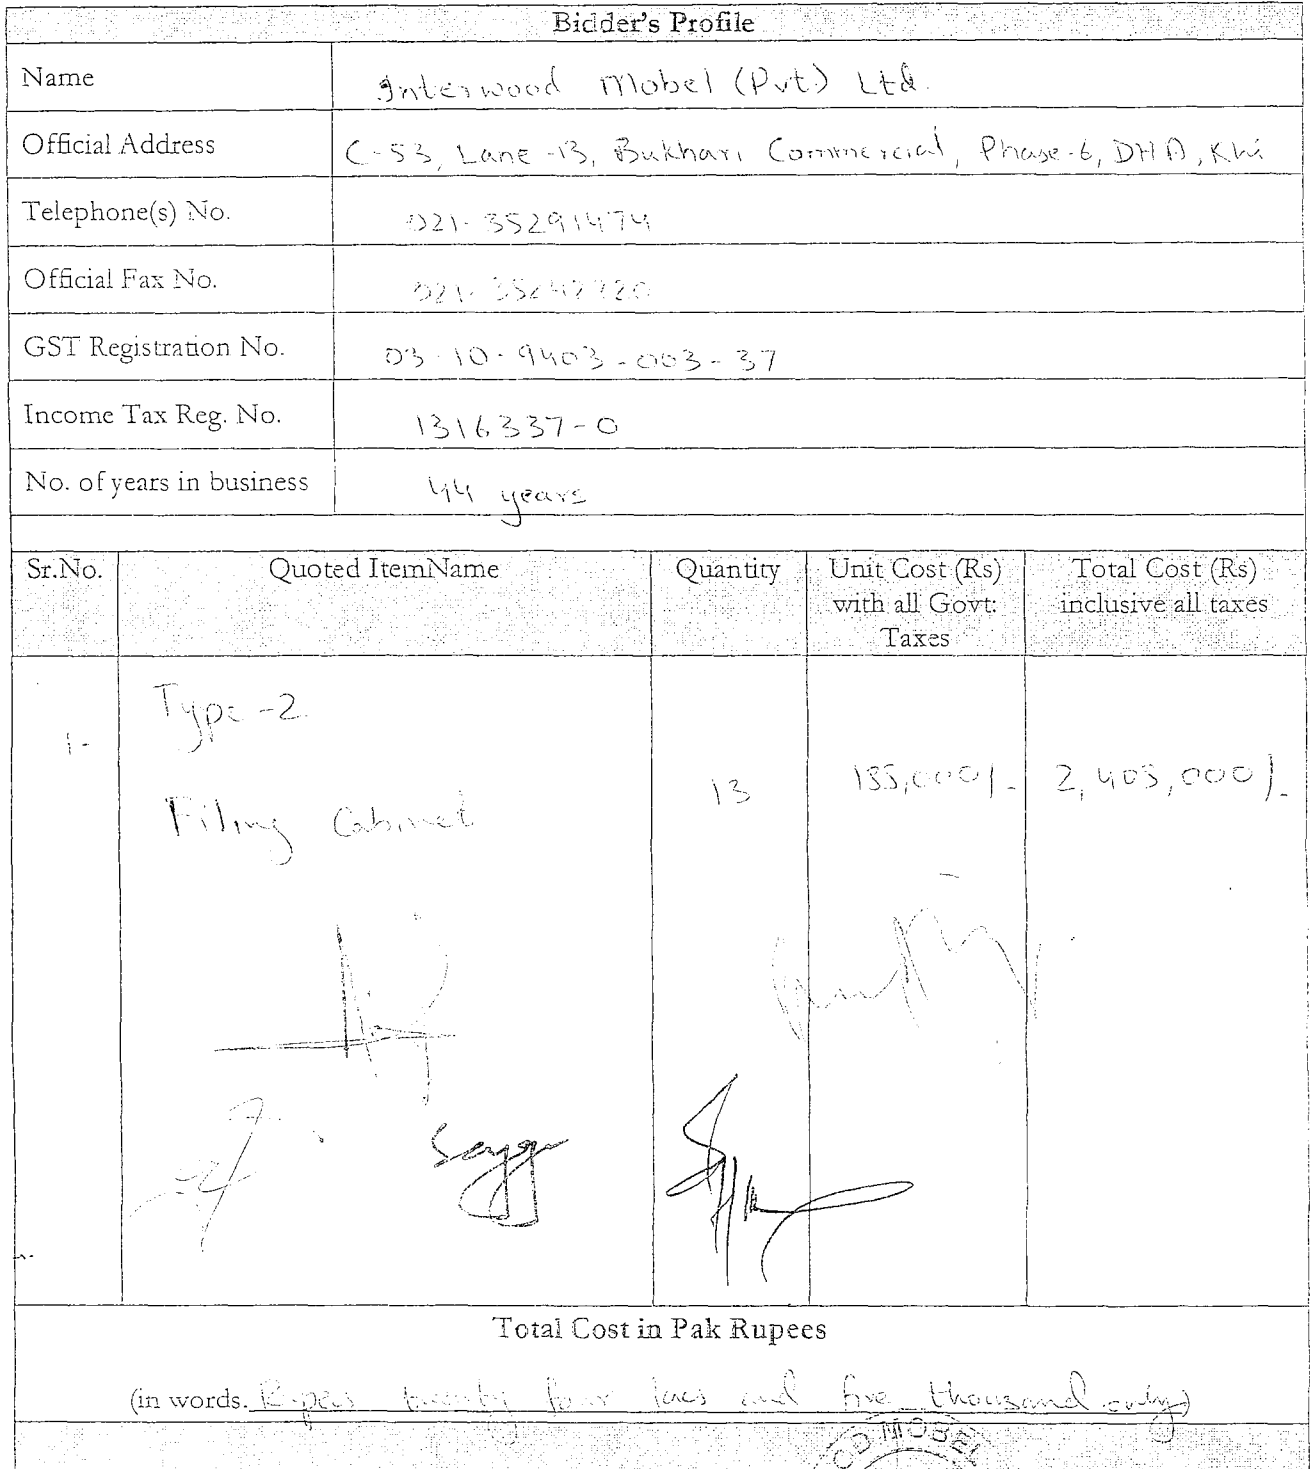 Bidder's Profile
Name Interwood Mobel (Pvt.) Ltd.
Official Address C-53, Lane-13, Bukhari Commercial, Phase-6, DHA, Khi
Telephone(s) No. 021-35291474
Official Fax No.
GST Registration No. 03-10-9403-003-37
Income Tax Reg. No. 1316337-0
No. of years in business 44 years
Sr.No. Quoted ItemName Quantity Unit Cost (Rs) with all Govt: Taxes Total Cost (Rs) inclusive all taxes
1- Type-2 Filing Cabinet 13 185,000/- 2,405,000/-
Total Cost in Pak Rupees
(in words. Rupees twenty four lacs and five thousand only)
OD MOBEL